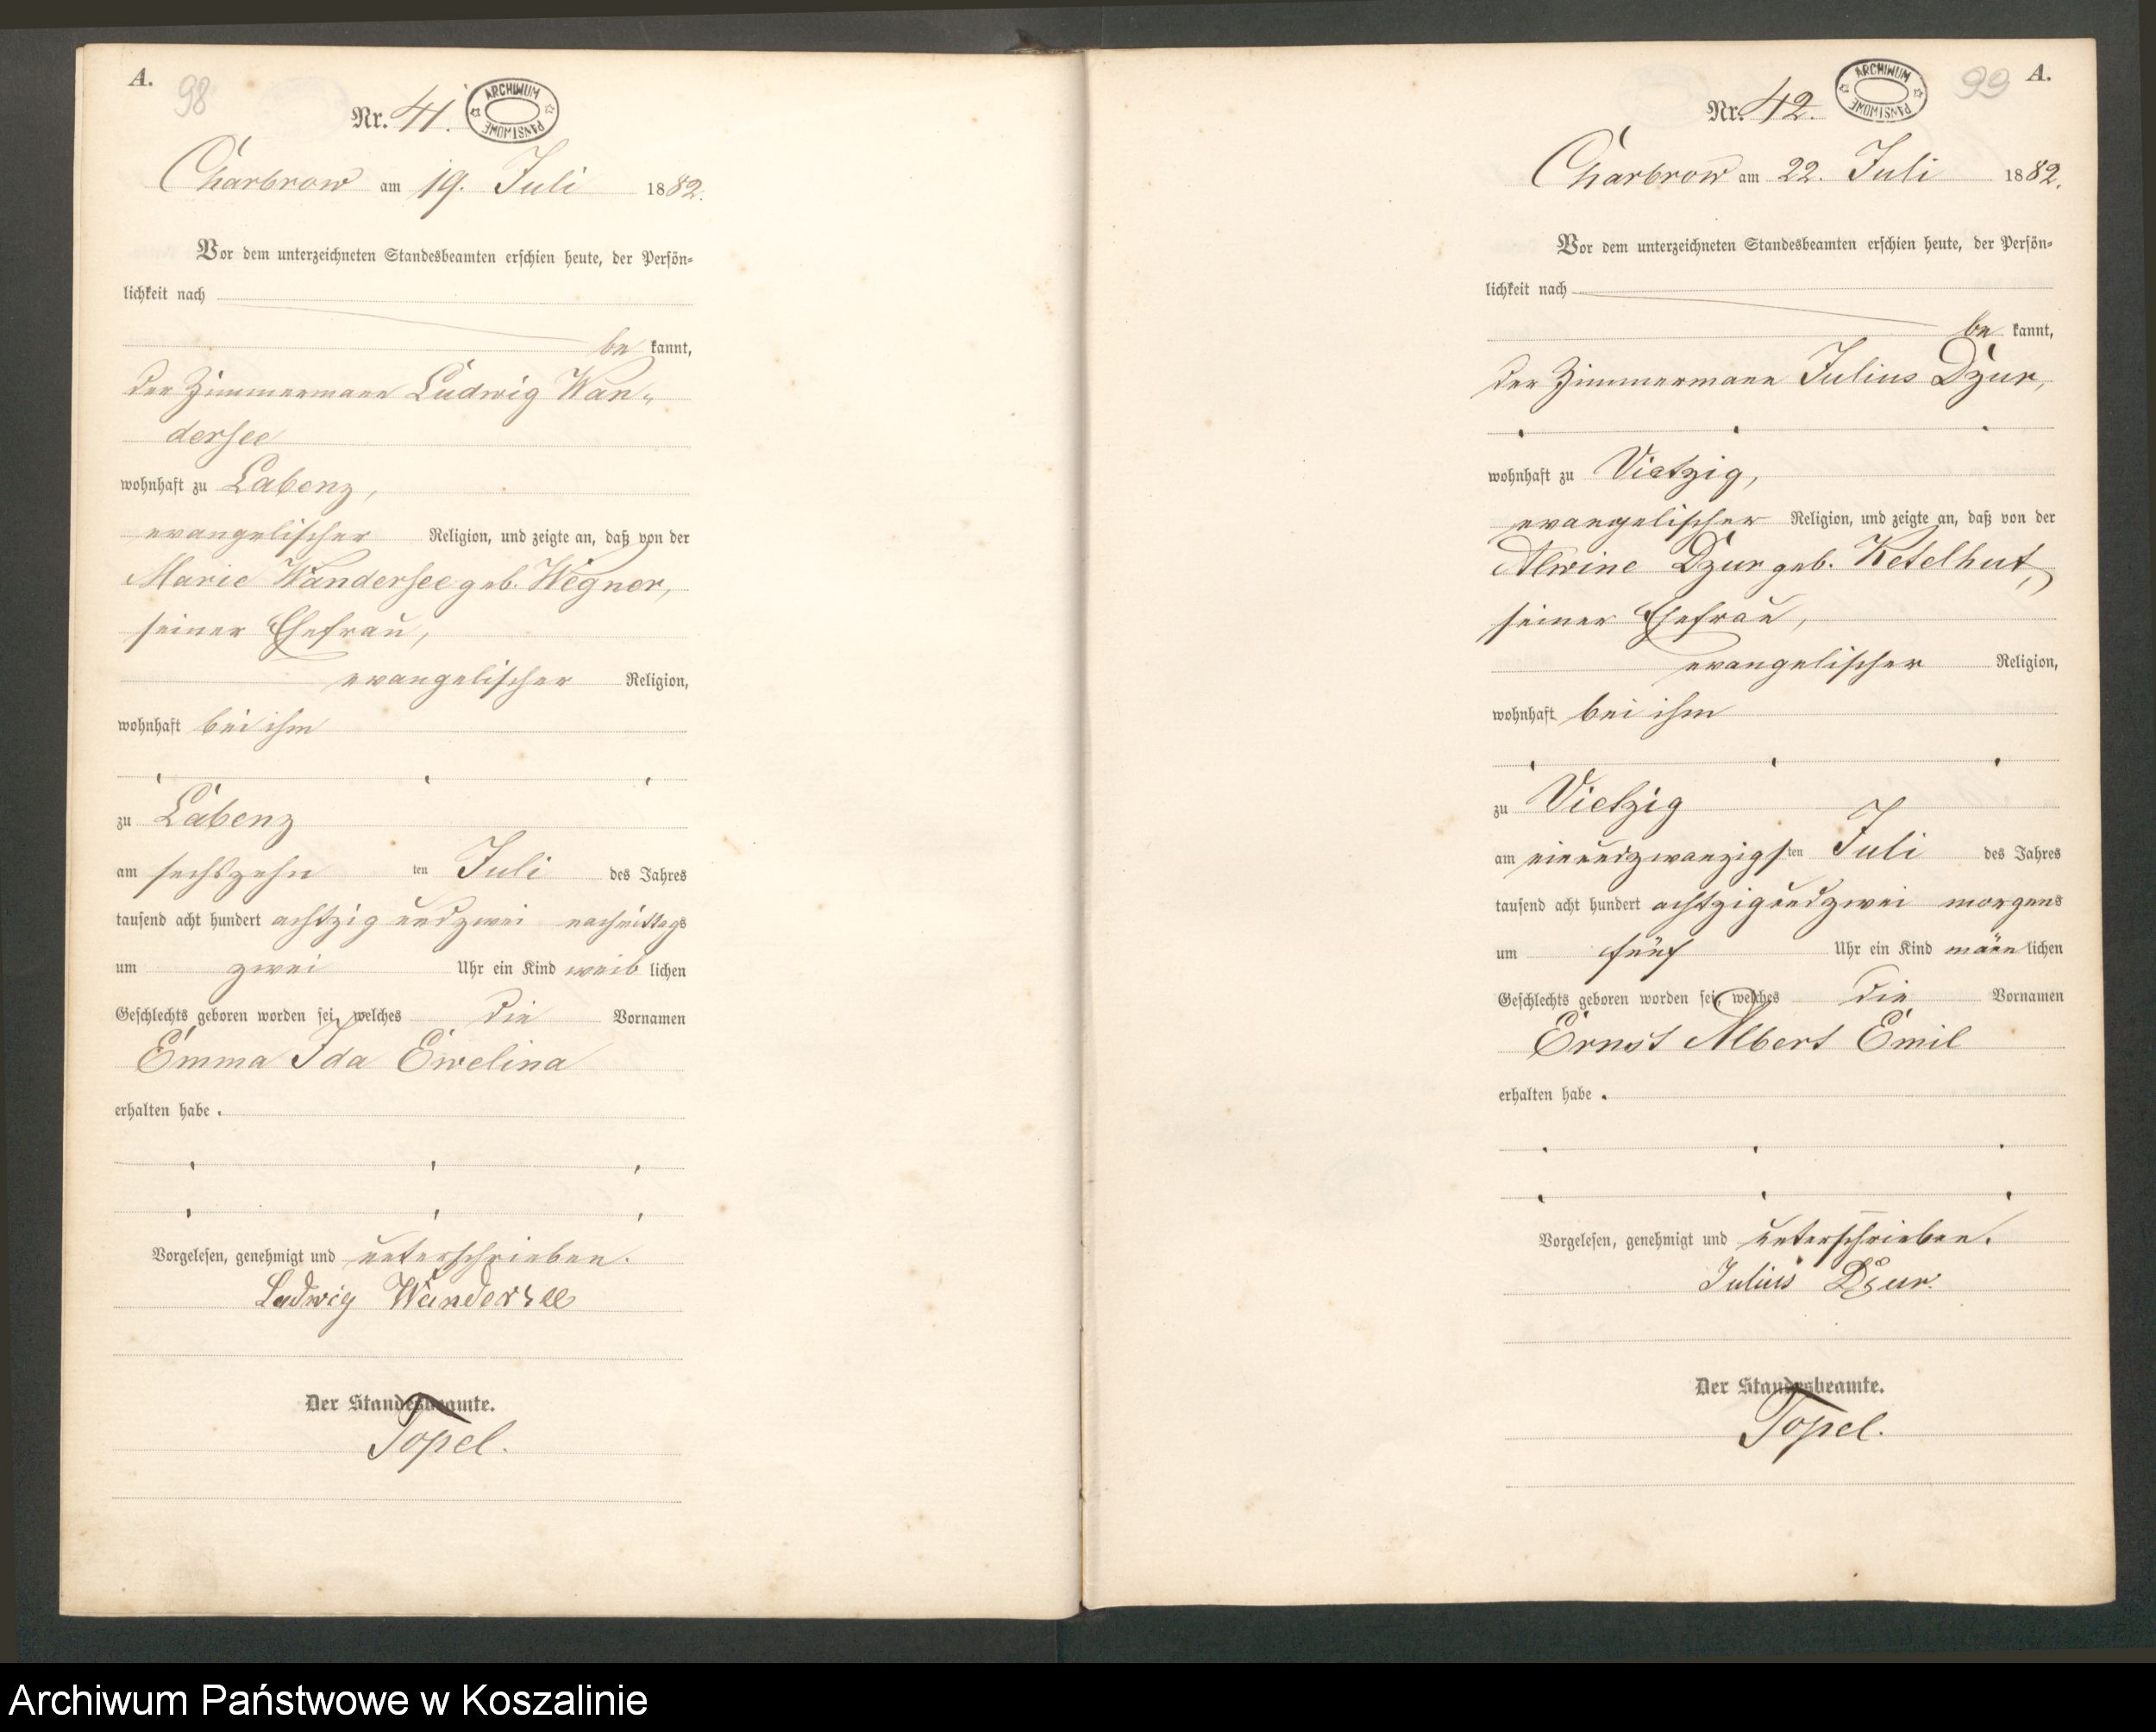 A.
98
Nr. 41.
ARCHIWUM PAŃSTWOWE
Charbrow am 19. Juli 1882.
Vor dem unterzeichneten Standesbeamten erschien heute, der Persön-
lichkeit nach
be kannt,
der Zimmermann Ludwig Wan-
dersee
wohnhaft zu Labenz,
evangelischer Religion, und zeigte an, daß von der
Marie Wandersee geb. Wegner,
seiner Ehefrau,
evangelischer Religion,
wohnhaft bei ihm
zu Labenz
am sechszehn ten Juli des Jahres
tausend acht hundert achtzig und zwei nachmittags
um zwei Uhr ein Kind weib lichen
Geschlechts geboren worden sei, welches die Vornamen
Emma Ida Ewelina
erhalten habe.
Vorgelesen, genehmigt und unterschrieben.
Ludwig Wandersee
Der Standesbeamte.
Topel.
A.
99
Nr. 42.
ARCHIWUM PAŃSTWOWE
Charbrow am 22. Juli 1882.
Vor dem unterzeichneten Standesbeamten erschien heute, der Persön-
lichkeit nach
be kannt,
der Zimmermann Julius Dzur,
wohnhaft zu Vietzig,
evangelischer Religion, und zeigte an, daß von der
Alwine Dzur geb. Ketelhut,
seiner Ehefrau,
evangelischer Religion,
wohnhaft bei ihm
zu Vietzig
am einundzwanzigsten Juli des Jahres
tausend acht hundert achtzig und zwei morgens
um fünf Uhr ein Kind männlichen
Geschlechts geboren worden sei, welches die Vornamen
Ernst Albert Emil
erhalten habe.
Vorgelesen, genehmigt und unterschrieben.
Julius Dzur.
Der Standesbeamte.
Topel.
Archiwum Państwowe w Koszalinie